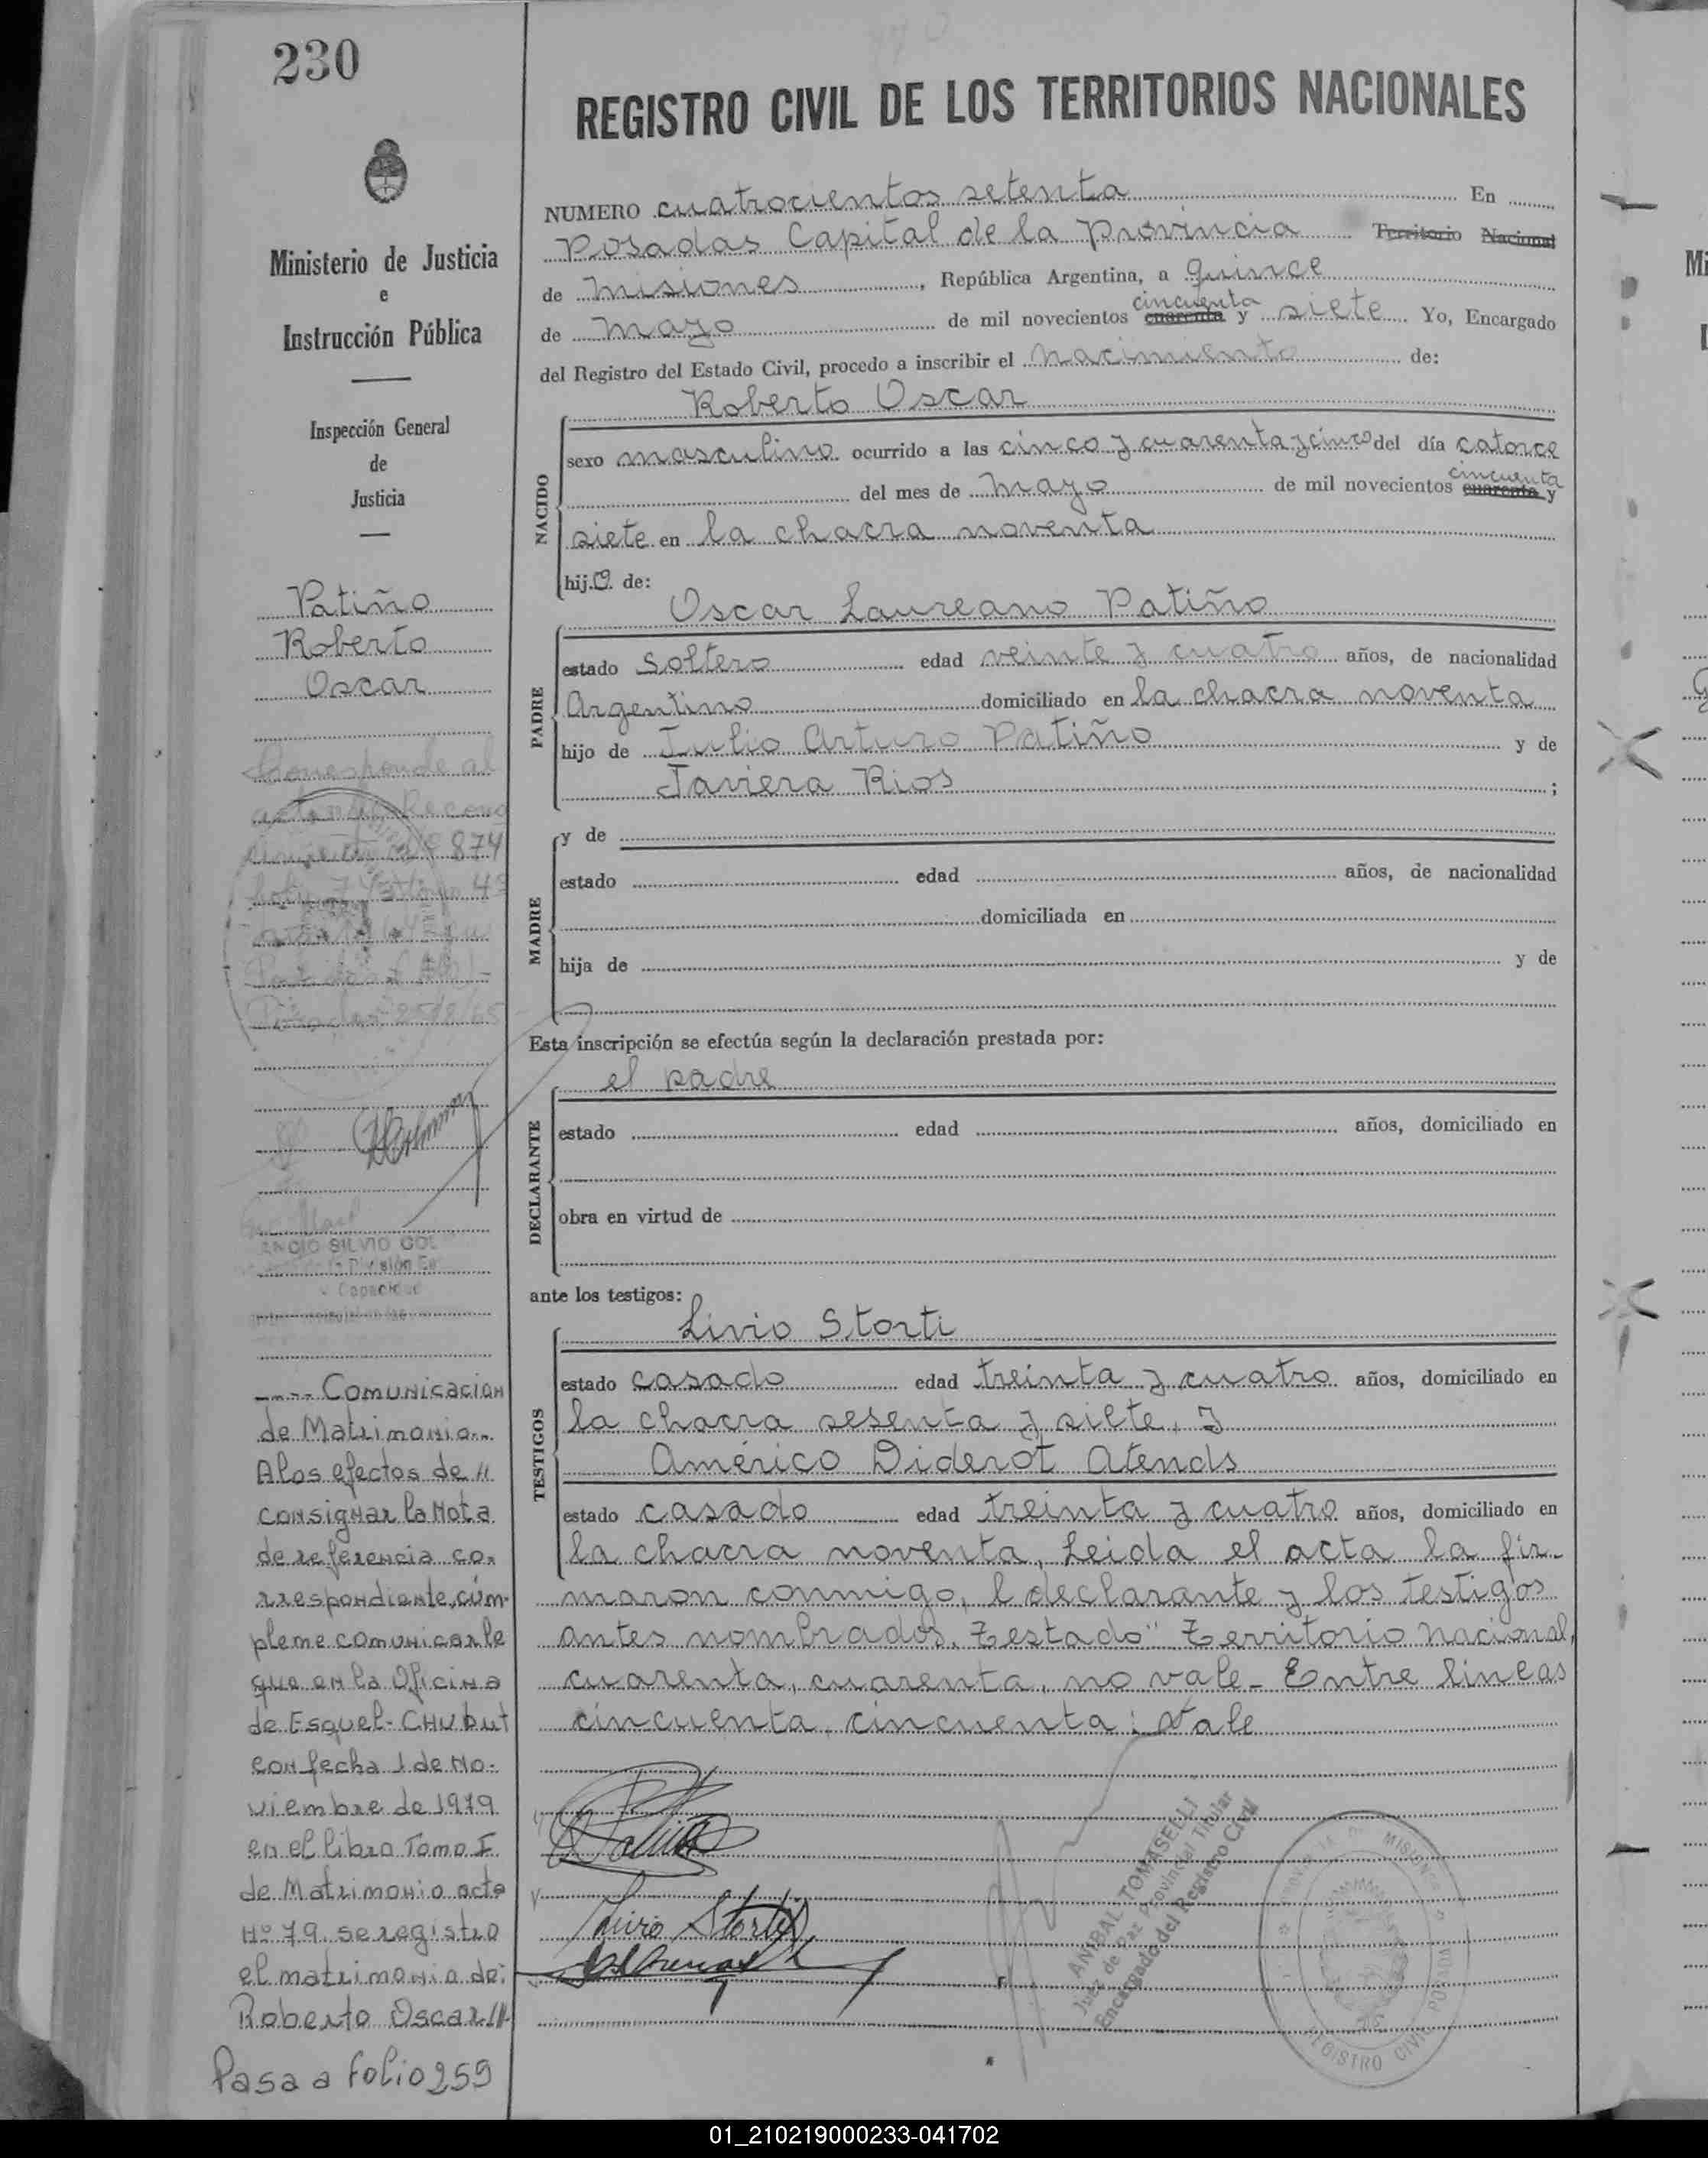 230
Ministerio de Justicia
e
Instrucción Pública
Inspección General
de
Justicia
Patiño
Roberto
Oscar
Corresponde al
874
ANCIO SILVIO COL
---- Comunicacion
de Matrimonio..
A los efectos de "
consignar la Nota
de referencia co-
rrespondiente, cúm-
pleme comunicarle
que en la Oficina
de Esquel- CHUbut
con fecha 1 de No-
viembre de 1979
en el libro Tomo I
de Matrimonio acta
Nº 79. se registro
el matrimonio de:
Roberto Oscar ///
Pasa a folio 259
REGISTRO CIVIL DE LOS TERRITORIOS NACIONALES
NUMERO cuatrocientos setenta En
Posadas Capital de la Provincia Territorio Nacional
de Misiones, República Argentina, a quince
cincuenta
de Mayo de mil novecientos cuarenta y siete Yo, Encargado
del Registro del Estado Civil, procedo a inscribir el Nacimiento de:
Roberto Oscar
NACIDO
sexo masculino ocurrido a las cinco y cuarenta y cinco del día catorce
cincuenta
del mes de Mayo de mil novecientos cuarenta y
siete en la chacra noventa
hijo de:
Oscar Laureano Patiño
PADRE
estado soltero edad veinte y cuatro años, de nacionalidad
Argentino domiciliado en la chacra noventa
hijo de Julio Arturo Patiño y de
Javiera Rios ;
MADRE
y de
estado edad años, de nacionalidad
domiciliada en
hija de y de
Esta inscripción se efectúa según la declaración prestada por:
el padre
DECLARANTE
estado edad años, domiciliado en
obra en virtud de
ante los testigos:
Livio Storti
TESTIGOS
estado casado edad treinta y cuatro años, domiciliado en
la chacra sesenta y siete, y
Américo Diderot Atends
estado casado edad treinta y cuatro años, domiciliado en
la chacra noventa, Leida el acta la fir-
maron conmigo, l declarante y los testigos
antes nombrados. Testado" Territorio Nacional,
cuarenta, cuarenta, no vale- Entre lineas
cincuenta, cincuenta: Vale
Livio Storti
ANIBAL TOMASELLI
Juez de Paz Provincial Titular
Encargado del Registro Civil
MISIONES
REGISTRO CIVIL POSADAS
01_210219000233-041702